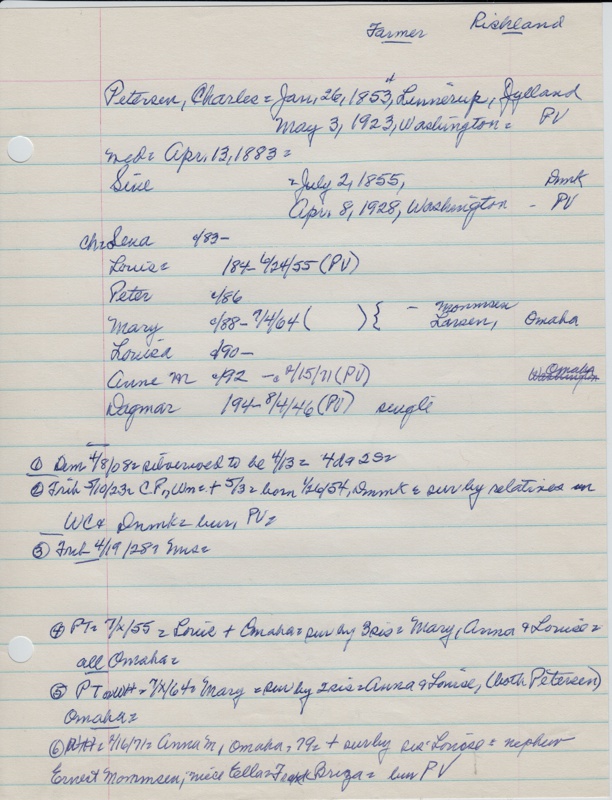 Farmer Richland
Petersen, Charles = Jan, 26, 1853, Linnerup, Jylland
May 3, 1923, Washington = PV
wed = Apr. 13, 1883 =
Sine = July 2, 1855, Dnmk
Apr. 8, 1928, Washington - PV
ch = Lena c/83 -
Louis = 184 - 6/24/55 (PV)
Peter c/86
Mary c/88 - 7/4/64 ( ) { - Mommsen Larsen, Omaha
Louisa c/90 -
Anne M c/92 - 2/15/71 (PV) Omaha Washington
Dagmar 194 - 8/4/46 (PV) single
① Dem 4/8/08 = silverwed to be 4/13 = 4da 2s =
② Trib 5/10/23 = C.P., Wn = + 5/3 = born 1/26/54, Dnmk = sur by relatives in
WC & Dnmk = bur, PV =
③ Trib 4/19/28 = Mrs =
④ PT = 7/x/55 = Louis + Omaha = sur by 3 sis = Mary, Anna & Louise =
all Omaha =
⑤ PT = 7/x/64 = Mary = sur by 2 sis = Anna & Louise, (both Petersen)
Omaha =
⑥ 2/16/71 = Anna M, Omaha, 79 = + sur by sis Louise = nephew
Ernest Mommsen, niece Ella = Frank Briza = bur PV